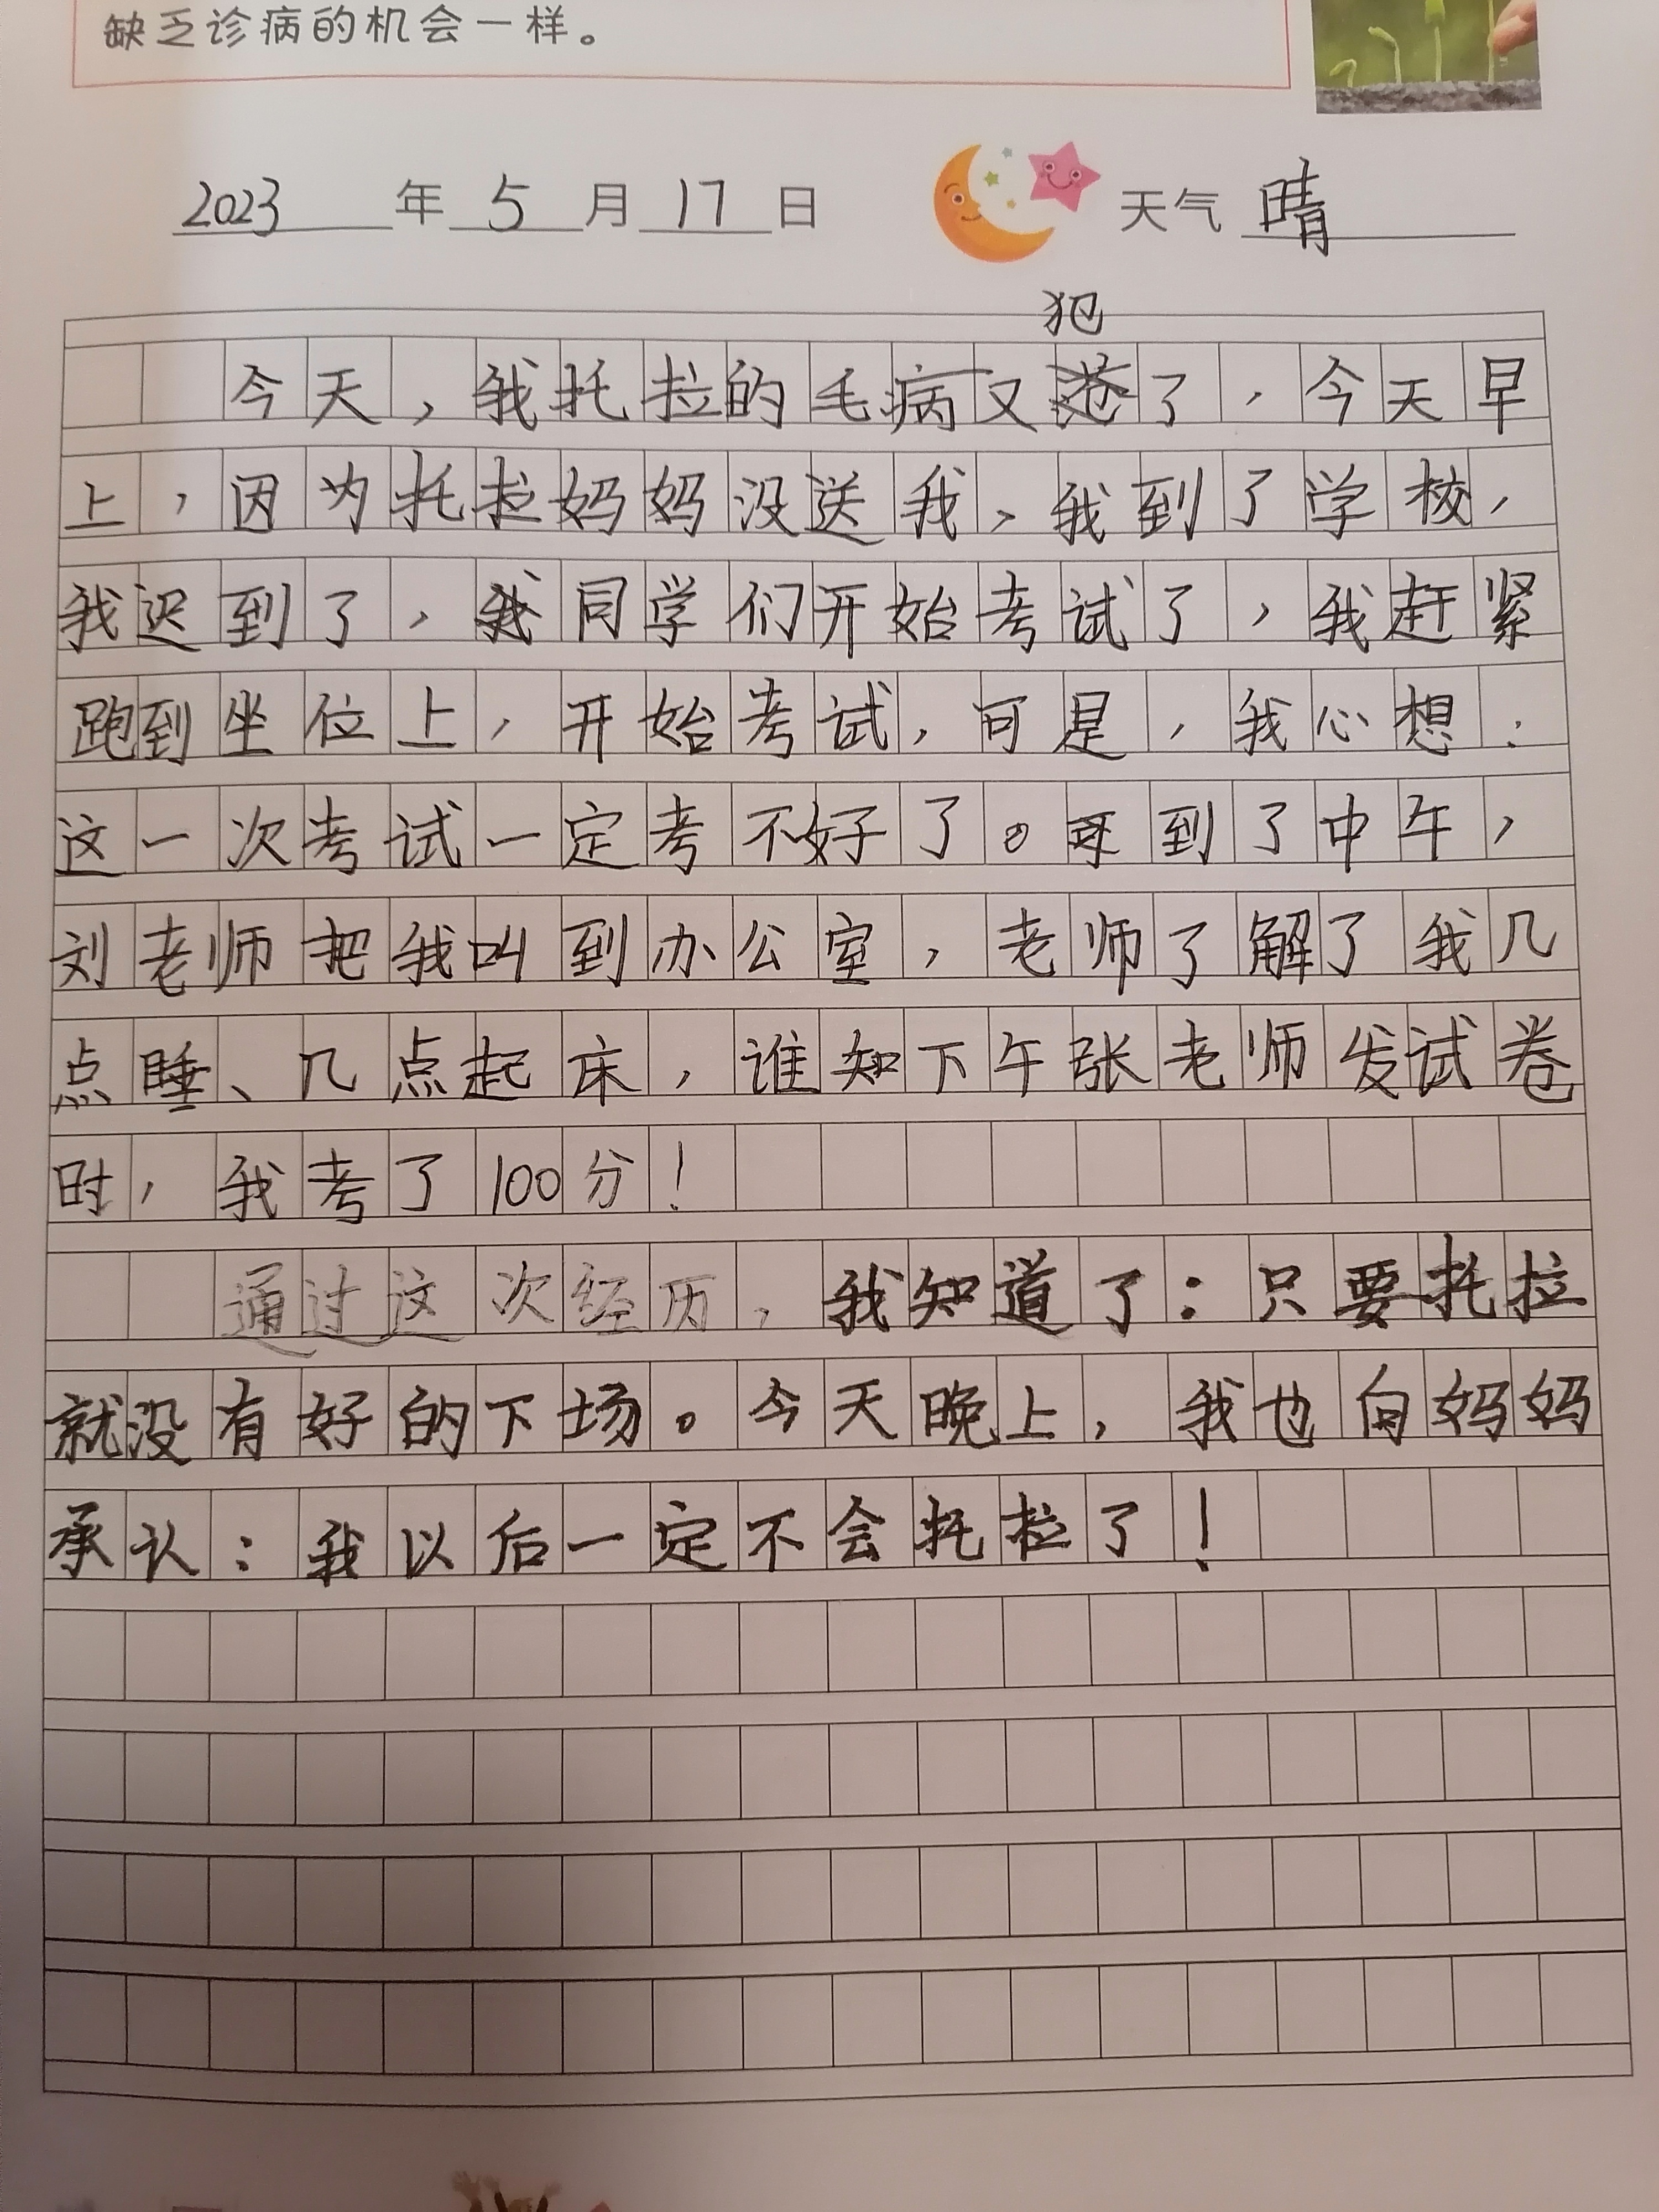 缺乏诊病的机会一样。
2023年5月17日 天气 晴
犯
今天，我托拉的毛病又了，今天早
上，因为托拉妈妈没送我，我到了学校，
我迟到了，我同学们开始考试了，我赶紧
跑到坐位上，开始考试，可是，我心想：
这一次考试一定考不好了。到了中午，
刘老师把我叫到办公室，老师了解了我几
点睡、几点起床，谁知下午张老师发试卷
时，我考了100分！
通过这次经历，我知道了：只要托拉
就没有好的下场。今天晚上，我也向妈妈
承认：我以后一定不会托拉了！